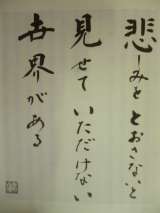 悲しみをとおさないと
見せていただけない
世界がある